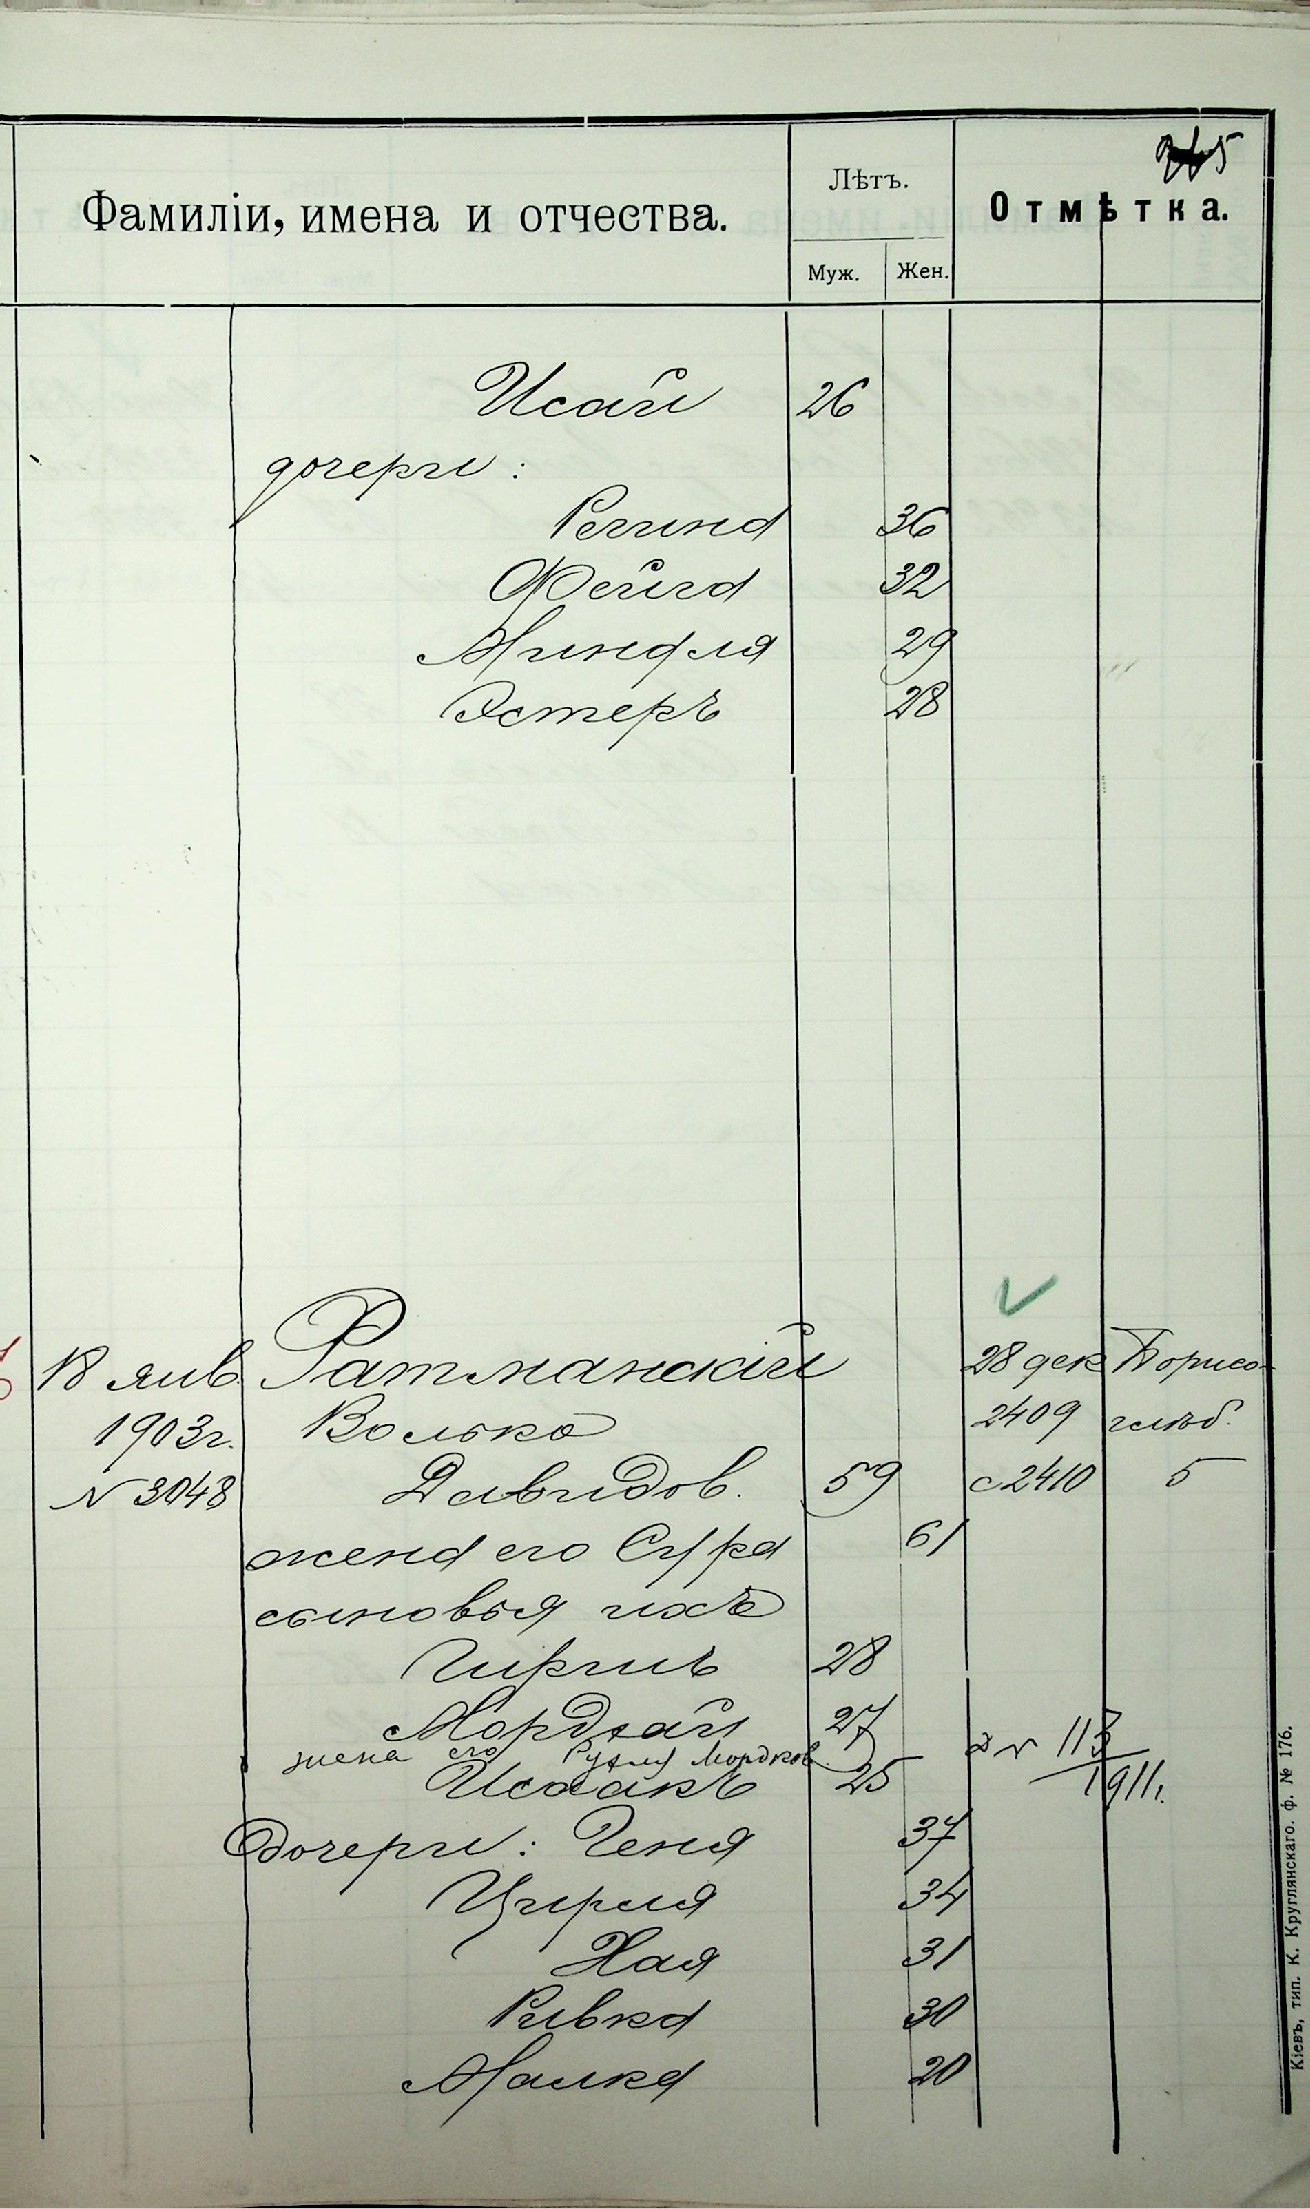 Фамиліи, имена и отчества.
Лѣтъ.
Муж.
Жен.
Отмѣтка.
Исай 26
дочери:
Регина 36
Фейга 32
Миндля 29
Эстеръ 28
18 янв. Ратманскій 28 дек Борисо-
1903г. Волько 2409 глѣб.
№ 3048 Давидов. 59 с 2410 5
жена его Сура 61
сыновья ихъ
Гиршъ 28
Мордхай 27
жена его Рухля Мордков. № 113
Исаакъ 25 1911г.
дочери: Геня 37
Цирля 34
Хая 31
Ривка 30
Малка 20
Кіевъ, тип. К. Круглянскаго. ф. № 176.